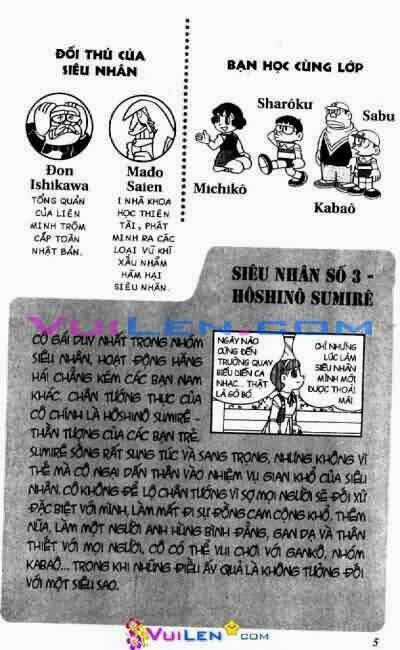 ĐỐI THỦ CỦA
SIÊU NHÂN
Đon
Ishikawa
TỔNG QUẢN
CỦA LIÊN
MINH TRỘM
CẮP TOÀN
NHẬT BẢN.
Mađo
Saien
1 NHÀ KHOA
HỌC THIÊN
TÀI, PHÁT
MINH RA CÁC
LOẠI VŨ KHÍ
XẤU NHẰM
HÃM HẠI
SIÊU NHÂN.
BẠN HỌC CÙNG LỚP
Michikô
Sharôku
Kabaô
Sabu
SIÊU NHÂN SỐ 3 -
HÔSHINÔ SUMIRÊ
CÔ GÁI DUY NHẤT TRONG NHÓM
SIÊU NHÂN, HOẠT ĐỘNG HĂNG
HÁI CHẲNG KÉM CÁC BẠN NAM
KHÁC. CHÂN TƯỚNG THỰC CỦA
CÔ CHÍNH LÀ HÔSHINÔ SUMIRÊ -
THẦN TƯỢNG CỦA CÁC BẠN TRẺ.
SUMIRÊ SỐNG RẤT SUNG TÚC VÀ SANG TRỌNG, NHƯNG KHÔNG VÌ
THẾ MÀ CÔ NGẠI DẤN THÂN VÀO NHIỆM VỤ GIAN KHỔ CỦA SIÊU
NHÂN. CÔ KHÔNG ĐỂ LỘ CHÂN TƯỚNG VÌ SỢ MỌI NGƯỜI SẼ ĐỐI XỬ
ĐẶC BIỆT VỚI MÌNH, LÀM MẤT ĐI SỰ ĐỒNG CAM CỘNG KHỔ. THÊM
NỮA, LÀM MỘT NGƯỜI ANH HÙNG BÌNH ĐẲNG, GAN DẠ VÀ THÂN
THIẾT VỚI MỌI NGƯỜI, CÔ CÓ THỂ VUI CHƠI VỚI GANKÔ, NHÓM
KABAÔ... TRONG KHI NHỮNG ĐIỀU ẤY QUẢ LÀ KHÔNG TƯỞNG ĐỐI
VỚI MỘT SIÊU SAO.
NGÀY NÀO
CŨNG ĐẾN
TRƯỜNG QUAY
BIỂU DIỄN CA
NHẠC... THẬT
LÀ GÒ BÓ.
CHỈ NHỮNG
LÚC LÀM
SIÊU NHÂN
MÌNH MỚI
ĐƯỢC THOẢI
MÁI
VUILEN.COM
5
VUILEN.COM